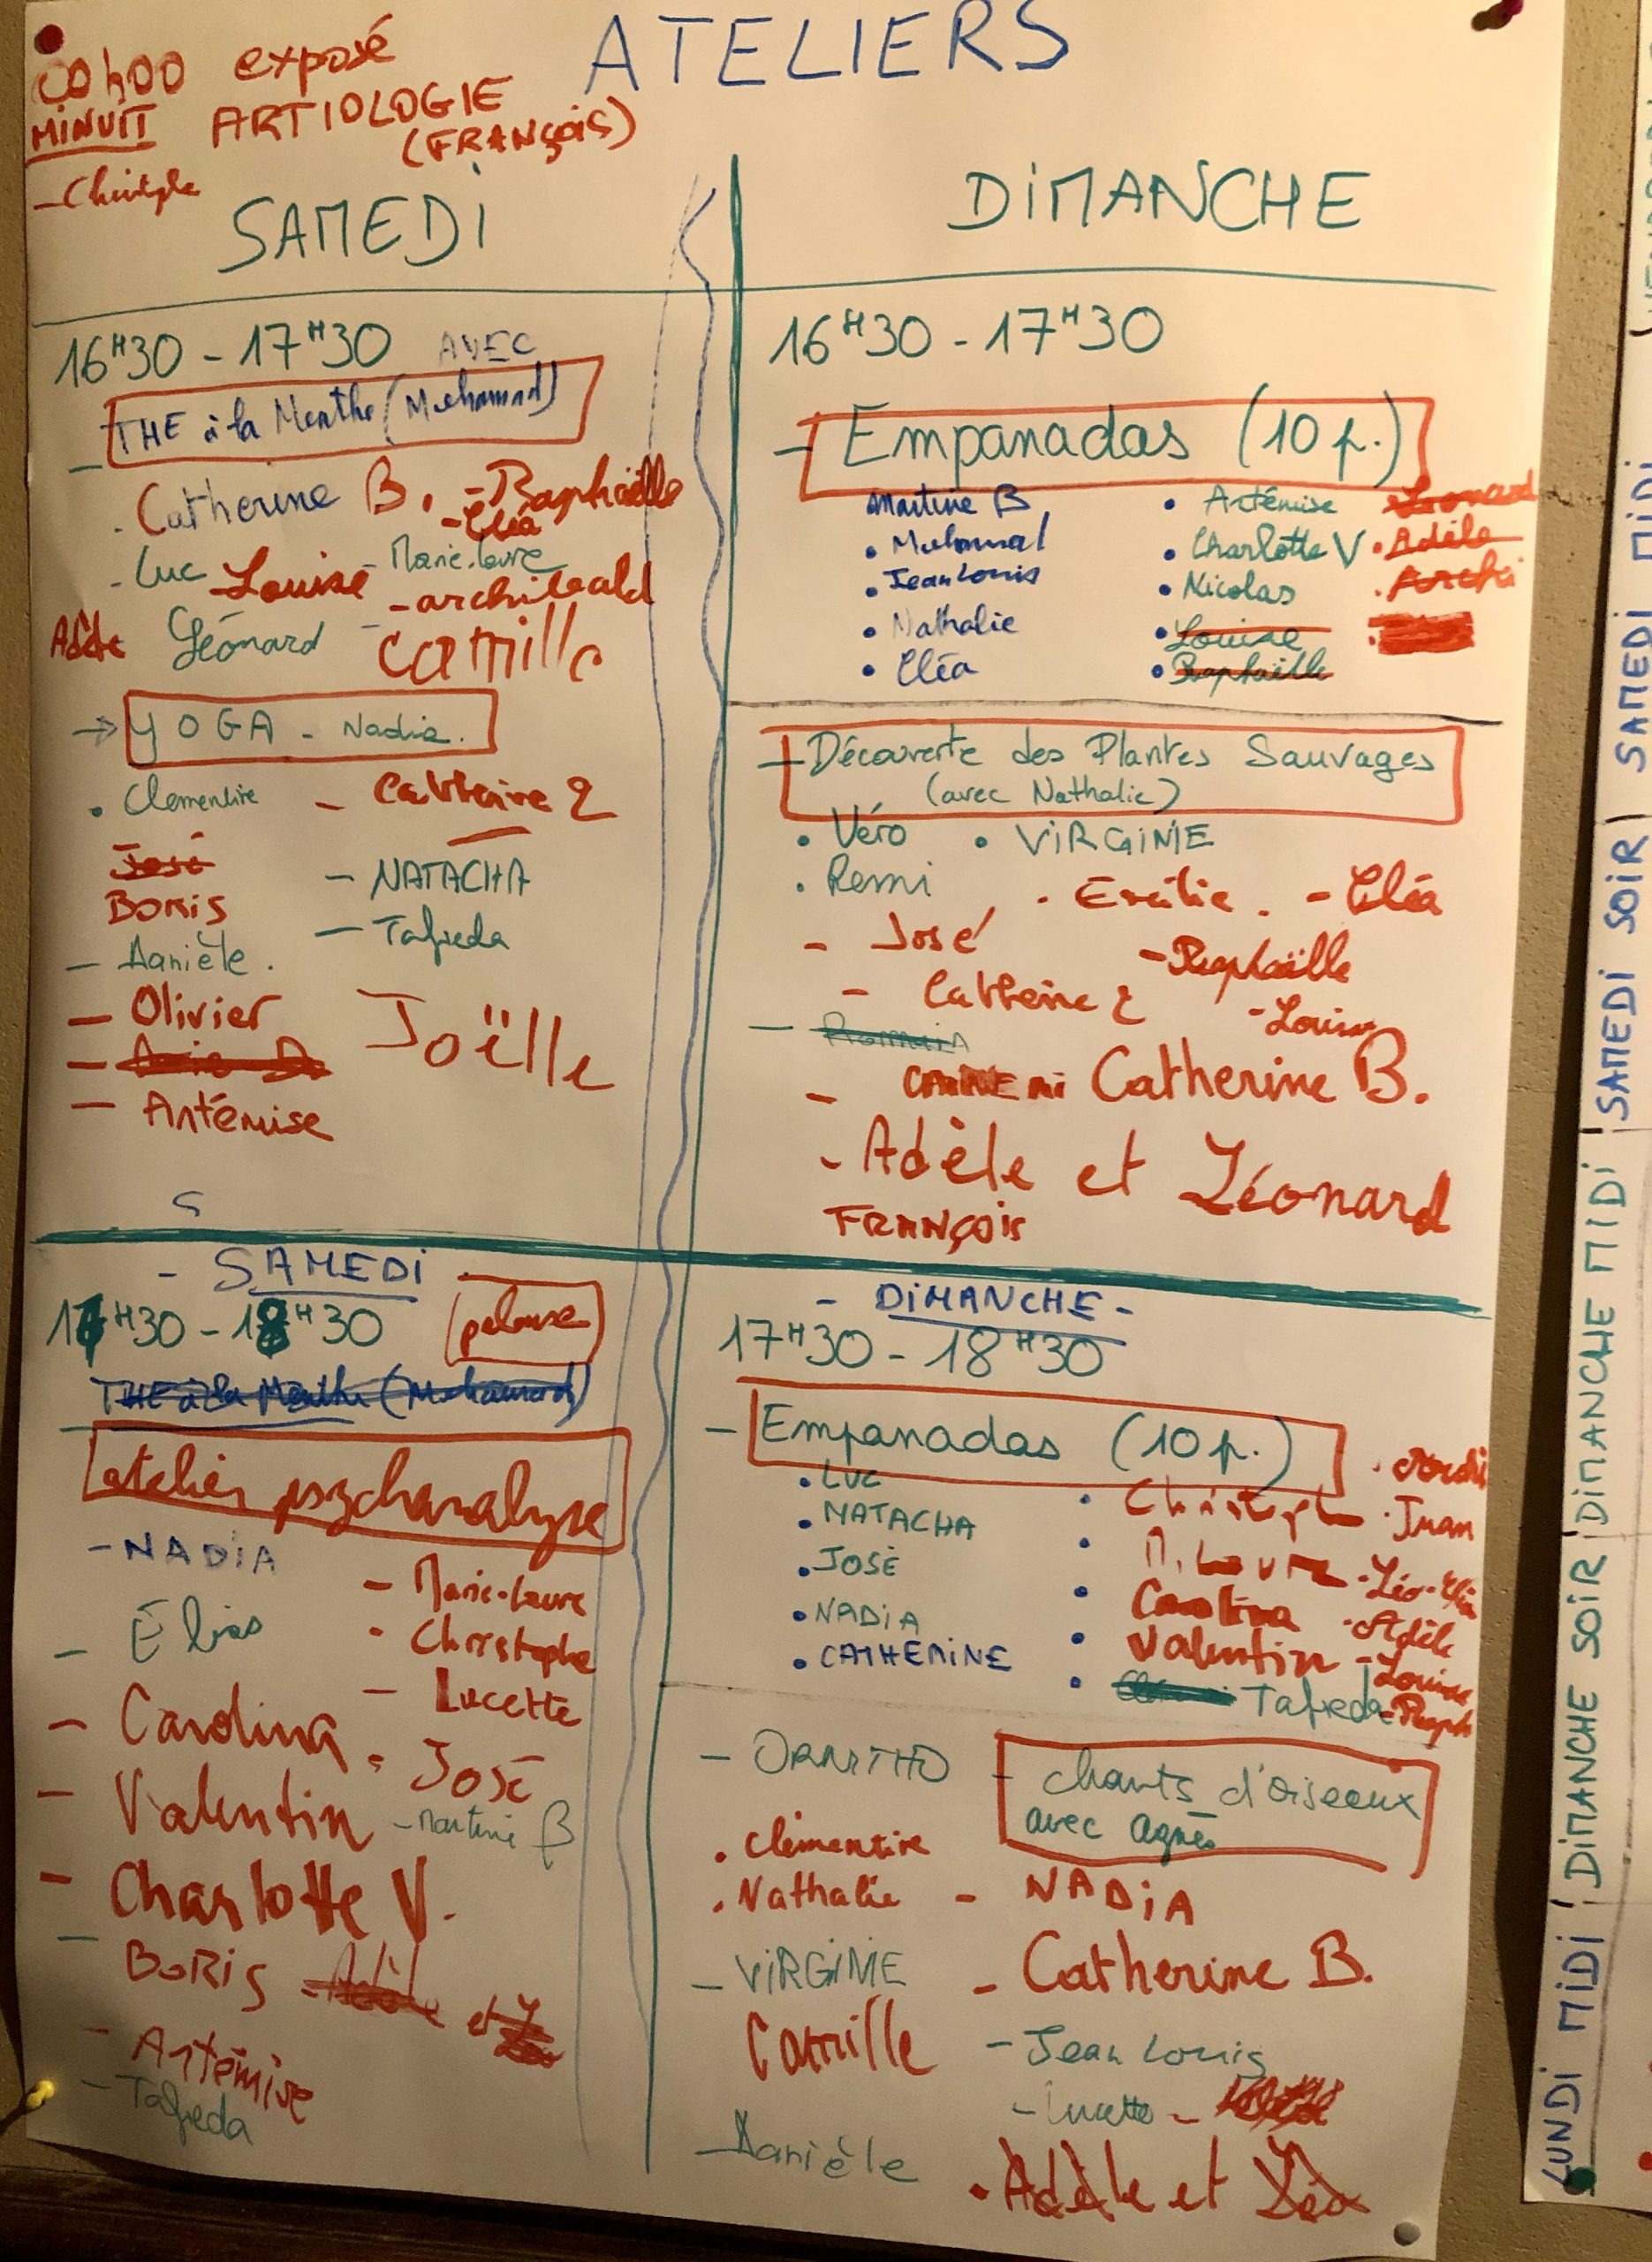 ATELIERS
00h00 exposé
MINUIT ARTIOLOGIE
(FRANÇOIS)
SAMEDI
16H30 - 17H30 AVEC
THE à la Menthe (Mohamad)
. Catherine B. - Raphaëlle
- Cléa
- Luc Louise - Marie-Laure
- archibald
Adèle Léonard - Camille
→ YOGA - Nadia.
. Clementine - Catherine 2
José
BORIS - NATACHA
- Danièle. - Tafreda
- Olivier
Joëlle
- Artémise
DIMANCHE
16H30 - 17H30
- Empanadas (10 p.)
Martine B • Artémise Léonard
• Mohamad • Charlotte V • Adèle
• Jean Louis • Nicolas . Archi
• Nathalie • Louise
• Cléa • Raphaëlle
- Découverte des Plantes Sauvages
(avec Nathalie)
• Véro • VIRGINIE
. Remi . - Cléa
- José - Raphaëlle
- Catherine 2 - Louise
- Romain
- Catherine B.
- Adèle et Léonard
FRANÇOIS
- SAMEDI
17H30 - 18H30 (pelouse)
THE à la Menthe (Mohamad)
atelier psychanalyse
- NADIA
- Marie-Laure
- Élias - Christophe
- Lucette
- Carolina
- José
- Valentin - Martine B
- Charlotte V.
- BORIS
- Artémise
- Tafreda
- DIMANCHE -
17H30 - 18H30
- Empanadas (10 p.)
• LUC • Christophe
• NATACHA • Juan
• JOSÉ • M. Laure
• NADIA • Carolina - Adèle
• CATHERINE • Valentin - Louise
• Tafreda - Raph
- ORNITHO - chants d'oiseaux
avec Agnès
. Clémentine
. Nathalie - NADIA
- VIRGINIE - Catherine B.
Camille - Jean Louis
- Lucette -
- Danièle • Adèle et Léo
LUNDI MIDI | DIMANCHE SOIR | DIMANCHE MIDI | SAMEDI SOIR | SAMEDI MIDI